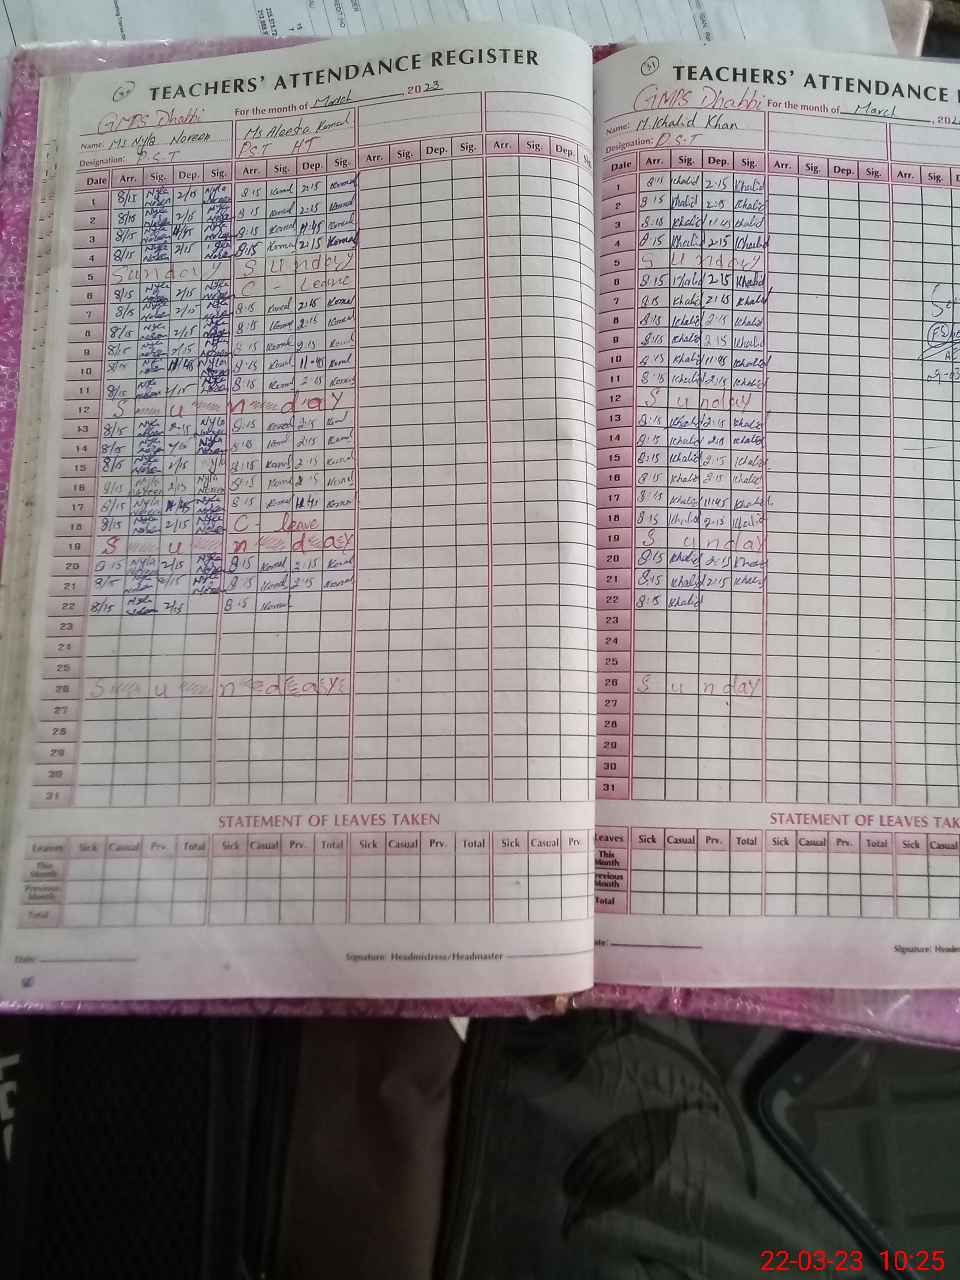 TEACHERS' ATTENDANCE REGISTER
GMPS Dhabbi For the month of March, 2023
Name: Ms Nyla Noreen Ms Aleesha Komal
Designation: P.S.T PST HT
Date Arr. Sig. Dep. Sig. Arr. Sig. Dep. Sig. Arr. Sig. Dep. Sig. Arr. Sig. Dep.
1 8/15 Nyla Noreen 2/15 Nyla 8:15 Komal 2:15 Komal
2 8/15 Nyla Noreen 2/15 8:15 Komal 2:15 Komal
3 8/15 Nyla Noreen 11/45 8:15 Komal 11:45 Komal
4 8/15 Nyla Noreen 2/15 8:15 Komal 2:15 Komal
5 Sunday Sunday
6 8/15 Nyla Noreen 2/15 C - Leave
7 8/15 Nyla Noreen 2/15 8:15 Komal 2:15 Komal
8 8/15 Nyla Noreen 2/15 8:15 Komal 2:15 Komal
9 8/15 Nyla Noreen 2/15 8:15 Komal 2:15 Komal
10 8/15 11/45 Nyla 8:15 Komal 11:45 Komal
11 8/15 Nyla Noreen 2/15 8:15 Komal 2:15 Komal
12 Sunday
13 8/15 Nyla Noreen 2/15 Nyla 8:15 Komal 2:15 Komal
14 8/15 Nyla Noreen Nyla 8:15 Komal 2:15 Komal
15 8/15 Nyla Noreen 2/15 Nyla 8:15 Komal 2:15 Komal
16 8/15 Nyla Noreen 2/15 Nyla Noreen 8:15 Komal 2:15 Komal
17 8/15 Nyla Noreen 11/45 Nyla 8:15 Komal Komal
18 8/15 Nyla Noreen 2/15 Nyla C - leave
19 Sunday
20 8:15 Nyla Noreen 2/15 Nyla 8:15 Komal 2:15 Komal
21 8/15 Noreen 2/15 Nyla Noreen 8:15 Komal 2:15 Komal
22 8/15 Nyla Noreen 2/15 8:15 Komal
23
24
25
26 Sunday
27
28
29
30
31
STATEMENT OF LEAVES TAKEN
Leaves Sick Casual Prv. Total Sick Casual Prv. Total Sick Casual Prv. Total Sick Casual Prv.
This Month
Previous Month
Total
Date:
Signature: Headmistress/Headmaster
31
TEACHERS' ATTENDANCE
GMPS Dhabbi For the month of March, 202
Name: M.Khalid Khan
Designation: P.S.T
Date Arr. Sig. Dep. Sig. Arr. Sig. Dep. Sig. Arr. Sig.
1 8:15 Khalid 2:15 Khalid
2 8:15 Khalid 2:15 Khalid
3 8:15 Khalid 11:45 Khalid
4 8:15 Khalid 2:15 Khalid
5 Sunday
6 8:15 Khalid 2:15 Khalid
7 8:15 Khalid 2:15 Khalid
8 8:15 Khalid 2:15 Khalid
9 8:15 Khalid 2:15 Khalid
10 8:15 Khalid 11:45 Khalid
11 8:15 Khalid 2:15 Khalid
12 Sunday
13 8:15 Khalid 2:15 Khalid
14 8:15 Khalid 2:15 Khalid
15 8:15 Khalid 2:15 Khalid
16 8:15 Khalid 2:15 Khalid
17 8:15 Khalid 11:45 Khalid
18 8:15 Khalid 2:15 Khalid
19 Sunday
20 8:15 Khalid 2:15 Khalid
21 8:15 Khalid 2:15 Khalid
22 8:15 Khalid
23
24
25
26 Sunday
27
28
29
30
31
STATEMENT OF LEAVES TAK
Leaves Sick Casual Prv. Total Sick Casual Prv. Total Sick Casual
This Month
Previous Month
Total
22-03-23 10:25